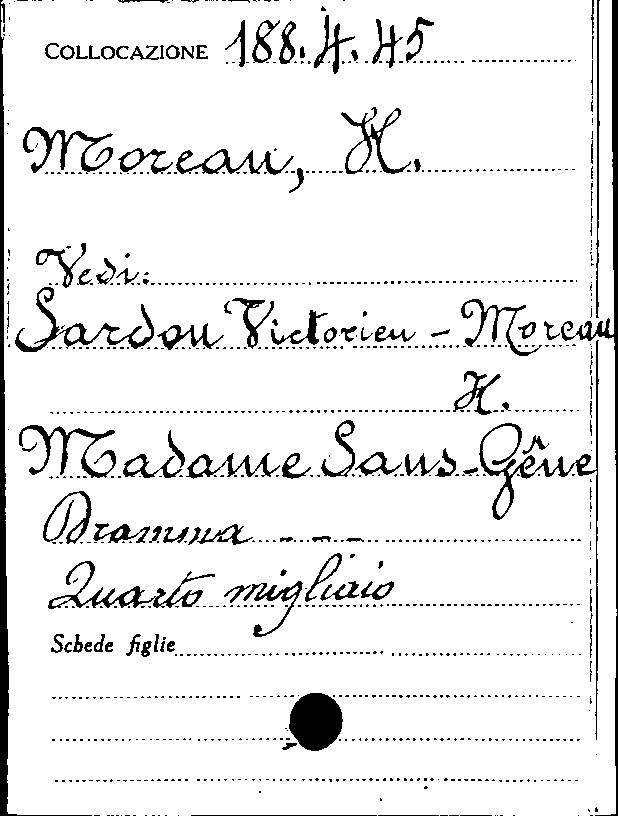 COLLOCAZIONE 188.4.45
Moreau, H.
Vedi:
Sardou Victorien - Moreau
H.
Madame Sans-Gêne
Dramma - - -
Quarto migliaio
Schede figlie